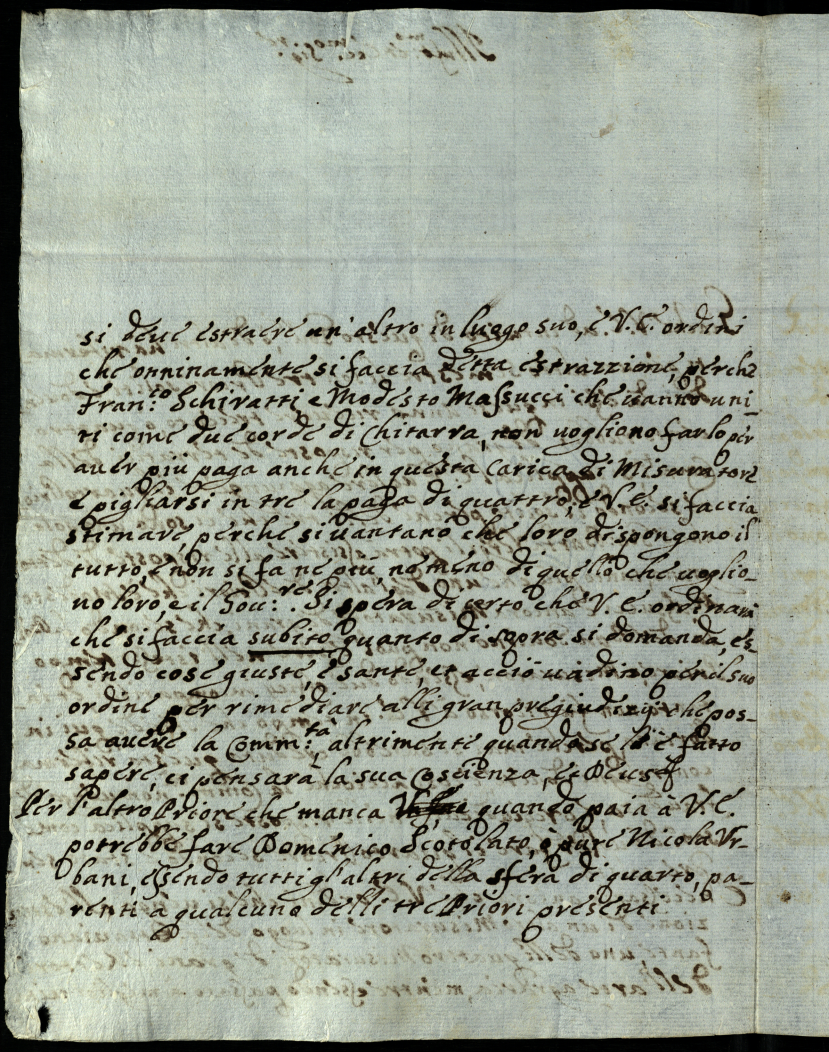 si deue estraere un'altro in luogo suo, e V. E. ordini
che onninamente si faccia detta estrazzione, perche
Fran:co Schiratti, e Modesto Massucci che uanno uni-
ti come due corde di Chitarra, non uogliono farlo per
auer più paga anche in questa Carica di Misuratore
e pigliarsi in tre la paga di quattro, e V. E. si faccia
stimare, perche si uantano che loro dispongono il
tutto, e non si fa ne più, ne meno di quello che uoglio-
no loro, e il Gou:re. Si spera di certo che V. E. ordinarà
che si faccia subito quanto di sopra si domanda, es-
sendo cose giuste, e sante, et acciò uadino per il suo
ordine per rimediare alli gran pregiudizij che pos-
sa auere la Comm:tà, altrimente quando se l'è fatto
sapere, ci pensarà la sua Coscienza, e Deus
Per l'altro Priore che manca quando paia à V. E.
potrebbe fare Domenico Scotolato, ò pure Nicola Vr-
bani, essendo tutti gl'altri della sfera di quarto, pa-
renti à qualcuno delli tre Priori presenti